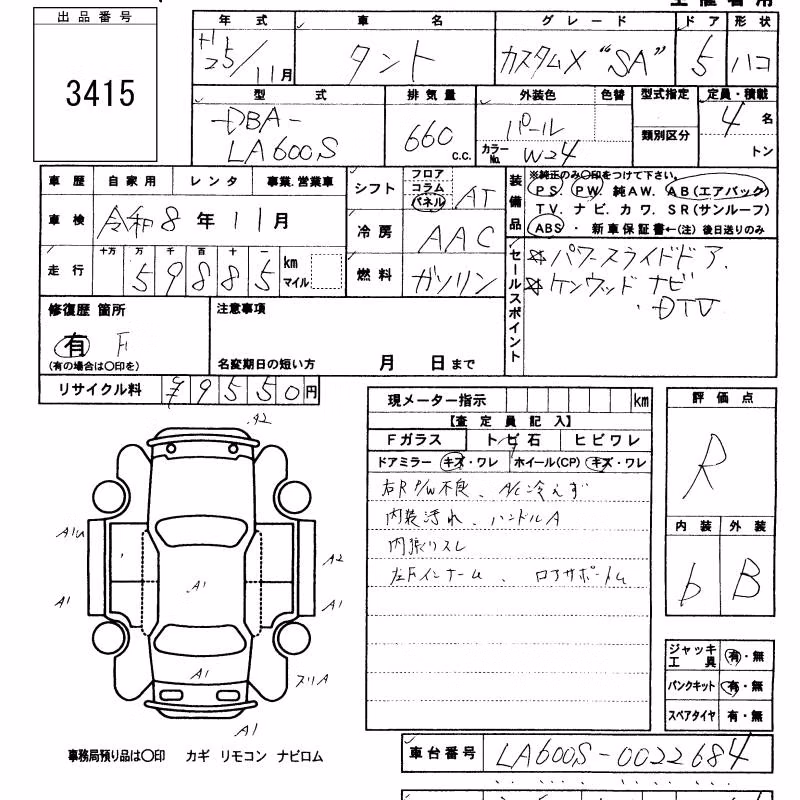 出品番号
3415
年式 車名 グレード ドア 形状
H25/11月 タント カスタムX "SA" 5 ハコ
型式 排気量 外装色 色替 型式指定 定員・積載
DBA-
LA600S
660 c.c.
パール
カラーNo. W24
類別区分
4 名
トン
車歴 自家用 レンタ 事業.営業車
車検 令和8年11月
走行 十万 万 千 百 十 一
59885 km
マイル
シフト フロア コラム パネル AT
冷房 AAC
燃料 ガソリン
装備品
※純正のみ〇印をつけて下さい。
PS. PW. 純AW. AB(エアバック)
TV. ナビ. カワ. SR(サンルーフ)
ABS ・ 新車保証書←(注)後日送りのみ
セールスポイント
☆パワースライドドア.
☆ケンウッドナビ
・DTV
修復歴 箇所
有 F
(有の場合は〇印を)
注意事項
名変期日の短い方 月 日まで
リサイクル料 ¥9550円
現メーター指示 km
【査定員記入】
Fガラス トビ石 ヒビワレ
ドアミラー キズ・ワレ ホイール(CP) キズ・ワレ
右R P/W不良、A/C冷えず
内装汚れ、ハンドルA
内張リスレ
左Fインナーム、ロアサポートム
評価点
R
内装 外装
b B
A2
A1U
A1
A1
A2
A1
A1
スリA
A1
ジャッキ工具 有・無
パンクキット 有・無
スペアタイヤ 有・無
事務局預り品は〇印 カギ リモコン ナビロム
車台番号 LA600S-0022684